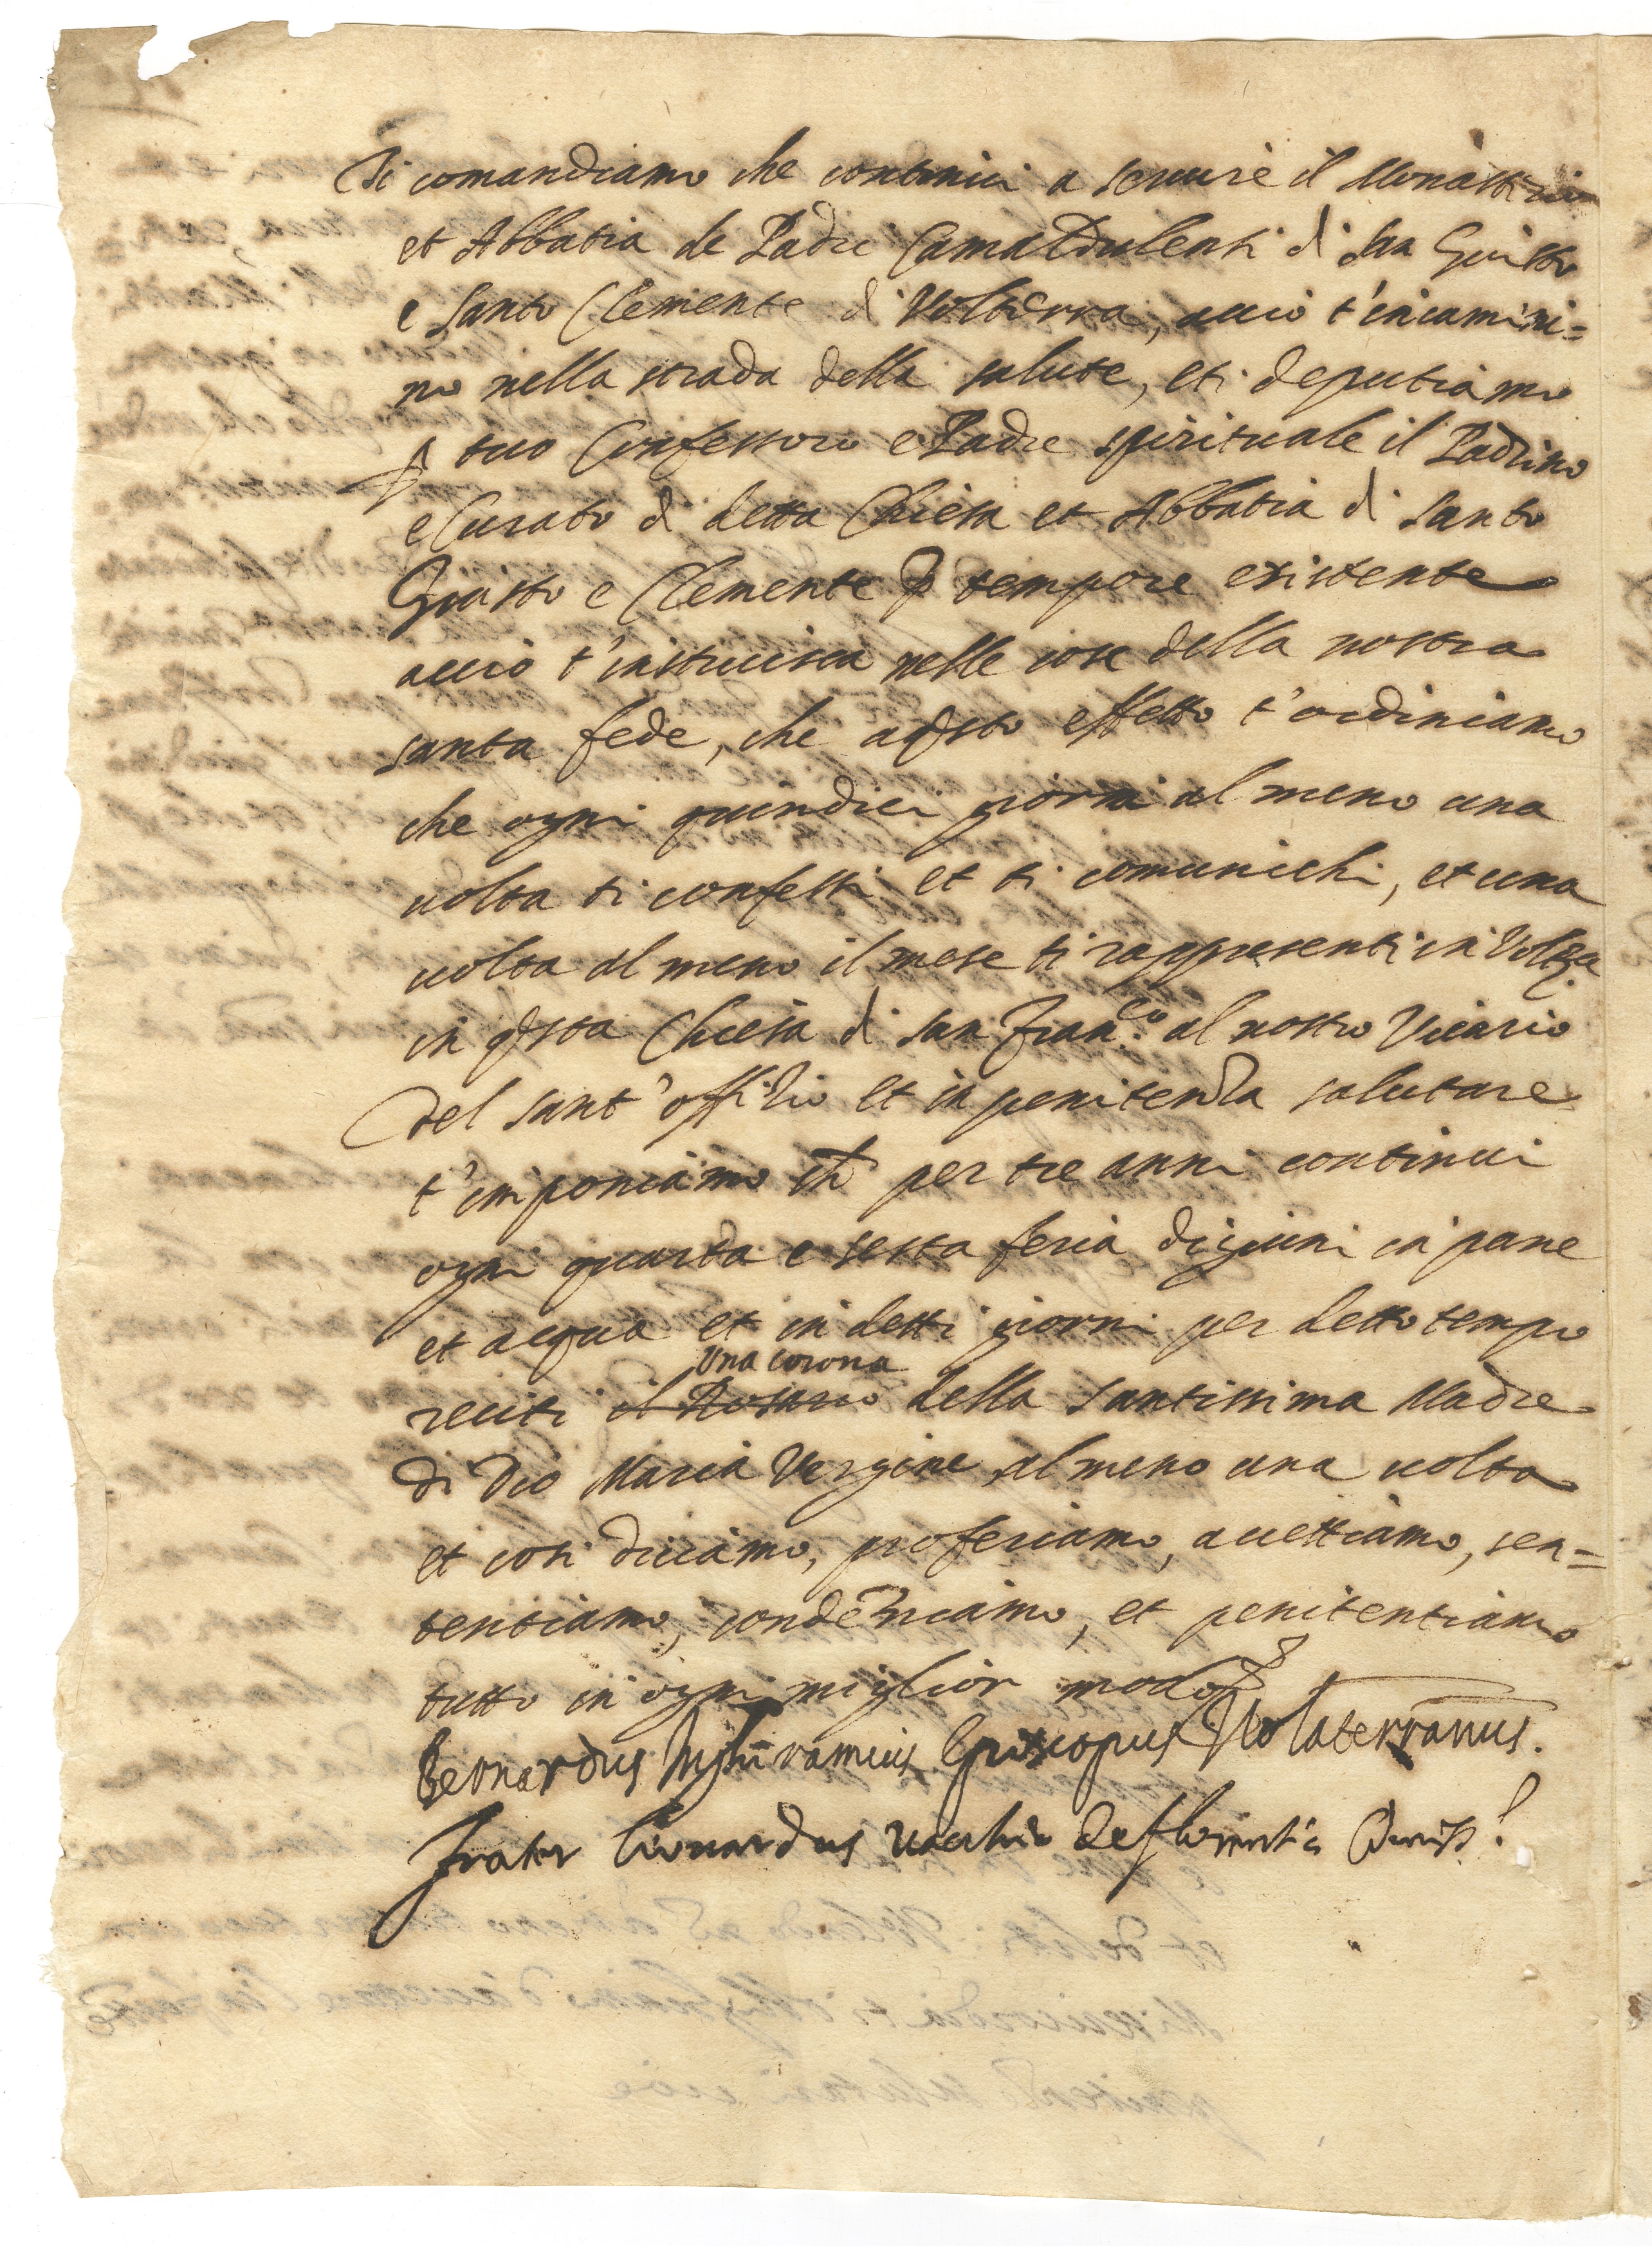 Ti comandiamo che continui a servire il Monasterio
et Abbatia de Padri Camaldulensi di San Giusto
e Santo Clemente di Volterra, acciò t'incamini=
no nella strada della salute, et ti deputiamo
p tuo Confessoro e Padre spirituale il Padrino
e Curato di detta Chiesa et Abbatia di Santo
Giusto e Clemente p tempore existente
acciò t'instruisca nelle cose della nostra
santa fede, che a qsto effetto t'ordiniamo
che ogni quindici giorni al meno una
volta ti confessi et ti comunichi, et una
volta al meno il mese ti rappresenti in Volt.ra
in qsta Chiesa di san Fran.co al nostro Vicario
del sant'offitio et in penitenza salutare
t'imponiamo ch per tre anni continui
ogni quarta e sesta feria digiuni in pane
et acqua et in detti giorni per detto tempo
reciti il Rosario una corona della santissima Madre
di Dio Maria Vergine al meno una volta
et cosi diciamo, proferiamo, accettiamo, sen=
tentiamo, condenniamo, et penitentiamo
tutto in ogni miglior modo
Bernardus Episcopus Volaterranus.
Frater Lionardus de florentia